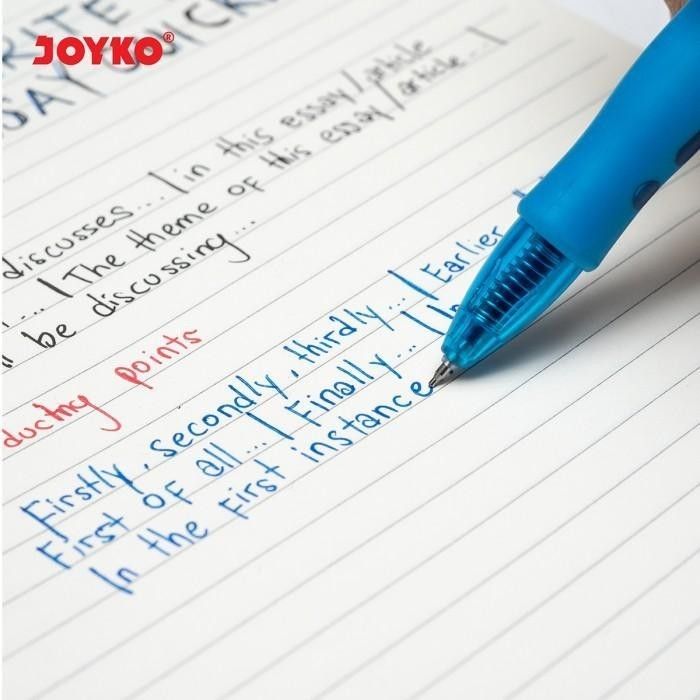 RITE
JOYKO®
SAY QUICK
discusses... / in this essay/article
... / The theme of this essay/article... /
be discussing...
ducing points
Firstly, secondly, thirdly... / Earlier
First of all... / Finally... /
In the first instance